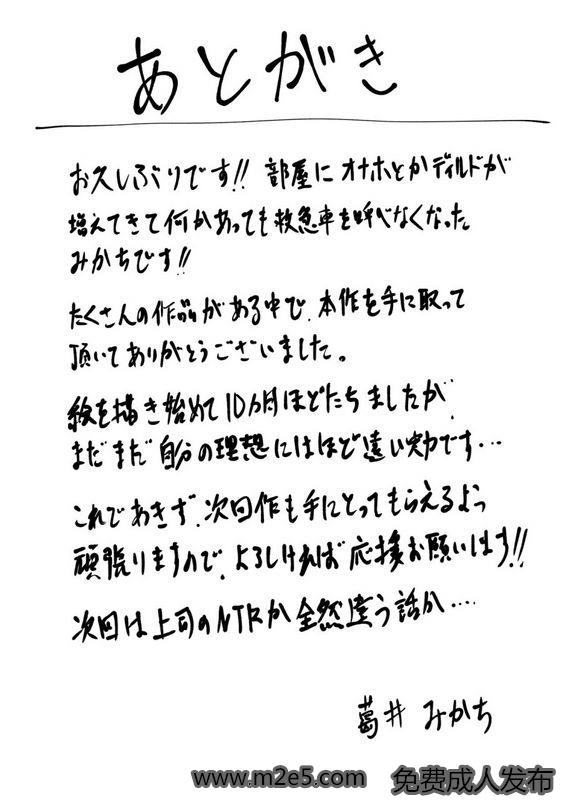 あとがき
お久しぶりです!! 部屋にオナホとかディルドが
増えてきて何かあっても救急車を呼べなくなった
みかちです!!
たくさんの作品がある中で、本作を手に取って
頂いてありがとうございました。
絵を描き始めて10ヵ月ほどたちましたが、
まだまだ自分の理想にはほど遠い実力です…
これであきず、次回作も手にとってもらえるよう
頑張りますので、よろしければ応援お願いします!!
次回は上司のNTRか全然違う話か….
葛井 みかち
www.m2e5.com 免费成人发布